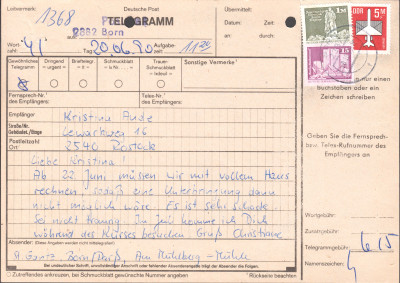 Leitvermerk:
1368
Deutsche Post
TELEGRAMM
2382 Born
Übermittelt:
Datum:
Zeit:
an:
durch:
Wort-
zahl
41
Aufgabe-
tag
20.06.90
Aufgabe-
zeit
11 20
Gewöhnliches
Telegramm
Dringend
=urgent=
Brieftelegr.
Schmuckblatt
=lx Nr. ...=
Trauer-
Schmuckblatt
=lxdeuil=
Sonstige Vermerke
Fernsprech-Nr.
des Empfängers:
Telex-Nr.
des Empfängers:
Empfänger
Kristina
Straße/Nr.
Gebäudeteil/Etage
16
Postleitzahl
Ort
2540 Rostock
Liebe Kristina!
Ab 22 Juni müssen wir mit vollem Haus
rechnen, sodaß eine Unterbringung dann
nicht möglich wäre. Es ist sehr schade
So nicht traurig. Im Juli komme ich Dich
während des Kurses besuchen Gruß Christiane
Absender: (Nur Eintragen, wenn Angaben nicht mittelegrafiert)
Born/Darß, Am Mühlberg-Mühle
Bei undeutlicher Schrift, unvollständiger Anschrift oder fehlender Absenderangabe trägt der Absender die Folgen.
Zutreffendes ankreuzen, bei Schmuckblatt gewünschte Nummer angeben
Rückseite beachten
1M
DDR
5M
15
je nur einen
Buchstaben oder ein
Zeichen schreiben
Geben Sie die Fernsprech-
bzw. Telex-Rufnummer des
Empfängers an
Wortgebühr:
Zusatzgebühr:
Telegrammgebühr:
6,15
Namenszeichen: